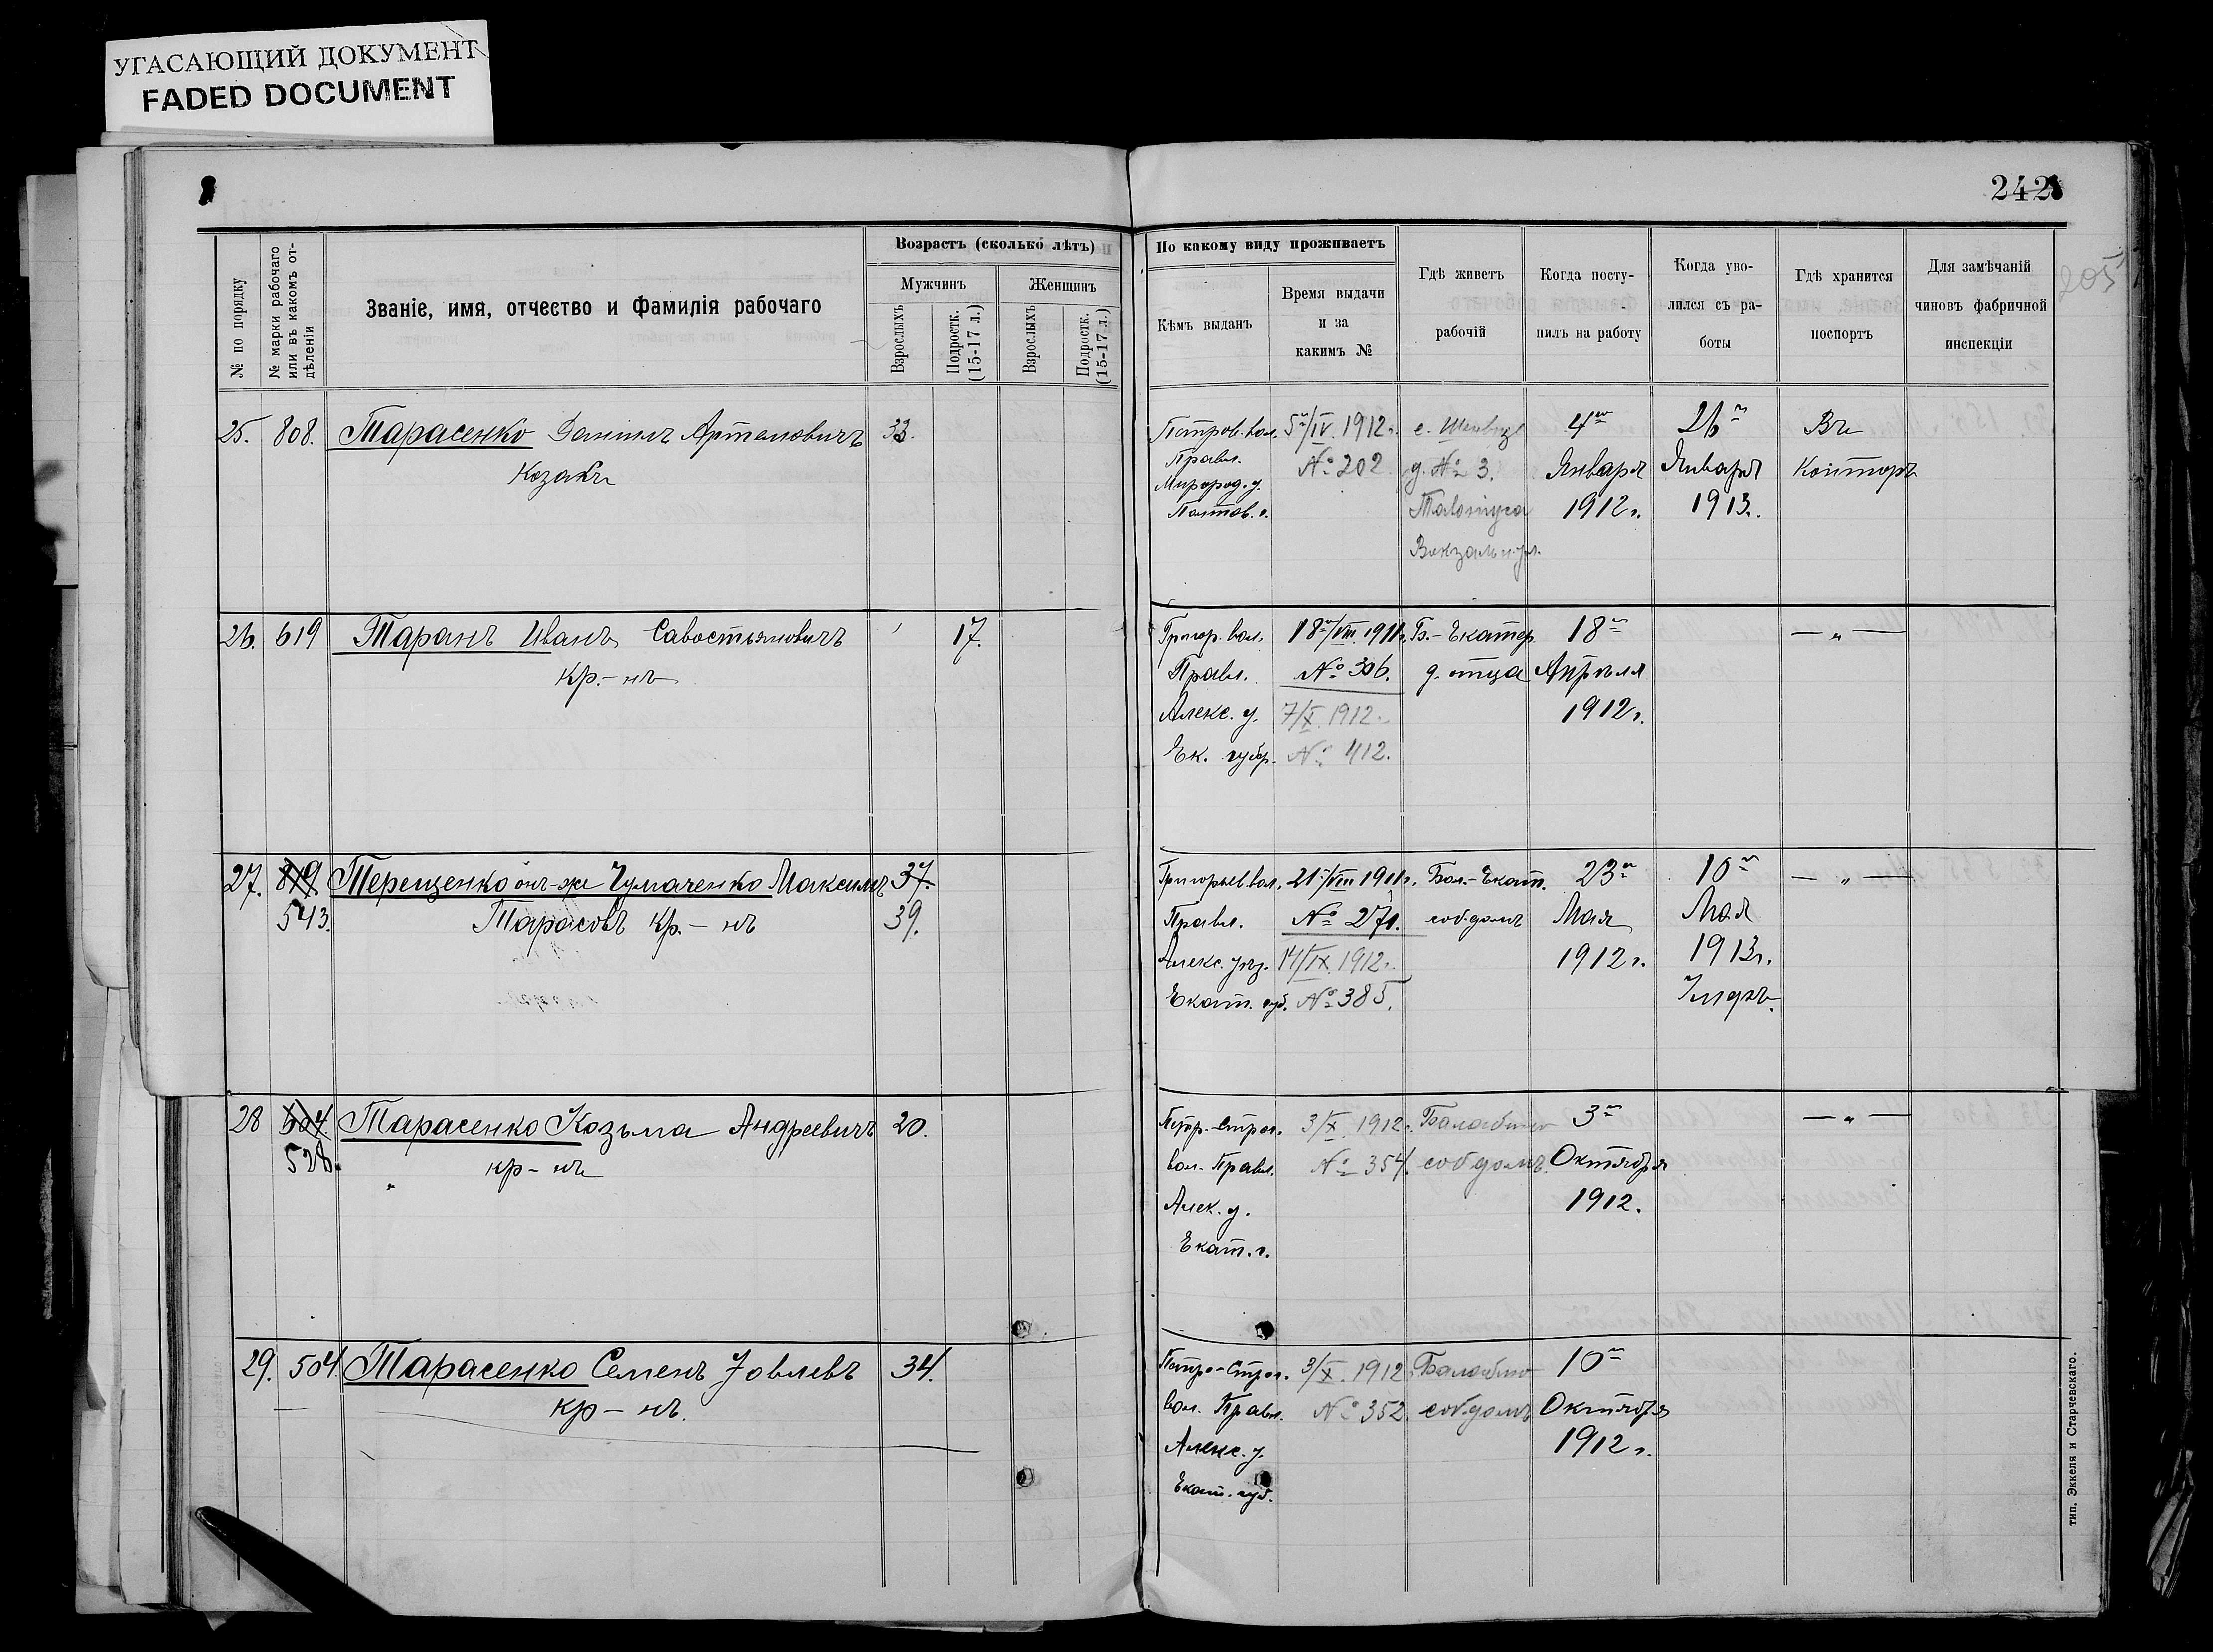 УГАСАЮЩИЙ ДОКУМЕНТ
FADED DOCUMENT
242
205
№ по порядку
№ марки рабочаго
или въ какомъ от-
дѣленіи
Званіе, имя, отчество и фамилія рабочаго
Возрастъ (сколько лѣтъ)
Мужчинъ
Женщинъ
Взрослыхъ
Подростк.
(15-17 л.)
Взрослыхъ
Подростк.
(15-17 л.)
По какому виду проживаетъ
Кѣмъ выданъ
Время выдачи
и за
какимъ №
Гдѣ живетъ
рабочій
Когда посту-
пилъ на работу
Когда уво-
лился съ ра-
боты
Гдѣ хранится
поспортъ
Для замѣчаній
чиновъ фабричной
инспекціи
25. 808. Тарасенко Данилъ Артемовичъ 33.
Козакъ
Петров. вол.
Правл.
Миргород. у.
Полтов. г.
5го/IV. 1912 г.
№ 202
с.
д. № 3.
Вокзальн. ул.
4го
Января
1912 г.
26го
Января
1913 г.
Въ
Конторѣ
26. 619 Таранъ Иванъ Савостьяновичъ 17.
кр.-нъ
Григор. вол.
Правл.
Алекс. у.
Ек. губер.
18го/VIII 1911 г.
№ 306.
7/X. 1912 г.
№ 412.
Б.-Екатер.
д. отца
18го
Апрѣля
1912 г.
— „ —
27. 819 Терещенко онъ-же Чумаченко Максимъ 37.
543. Тарасовъ кр.-нъ 39.
Григорьев. вол.
Правл.
Алекс. уѣз.
Екат. губ.
21го/VIII 1911 г.
№ 271.
14/IX. 1912 г.
№ 385.
Бол.-Екат.
соб. домъ
23го
Мая
1912 г.
10го
Мая
1913 г.
— „ —
28 604 Тарасенко Козьма Андреевичъ 20.
528. кр-нъ
вол. Правл.
Алек. у.
Екат. г.
3/X. 1912 г.
№ 354.
соб. домъ.
3го
Октября
1912.
— „ —
29. 504. Тарасенко Семенъ Іовлевъ 34.
кр-нъ.
вол. Правл.
Алекс. у.
Екат. губ.
3/X. 1912
№ 352.
соб. домъ
10го
Октября
1912 г.
тип. Эккеля и Старчевскаго.